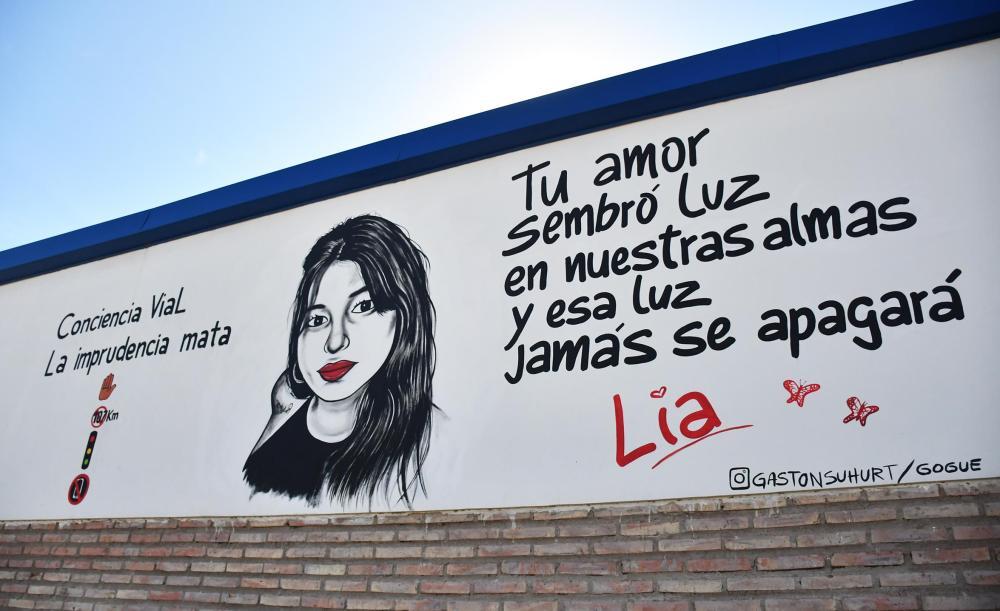 Conciencia Vial
La imprudencia mata
107Km
Tu amor
sembró luz
en nuestras almas
y esa luz
jamás se apagará
Lia
GASTONSUHURT/GOGUE